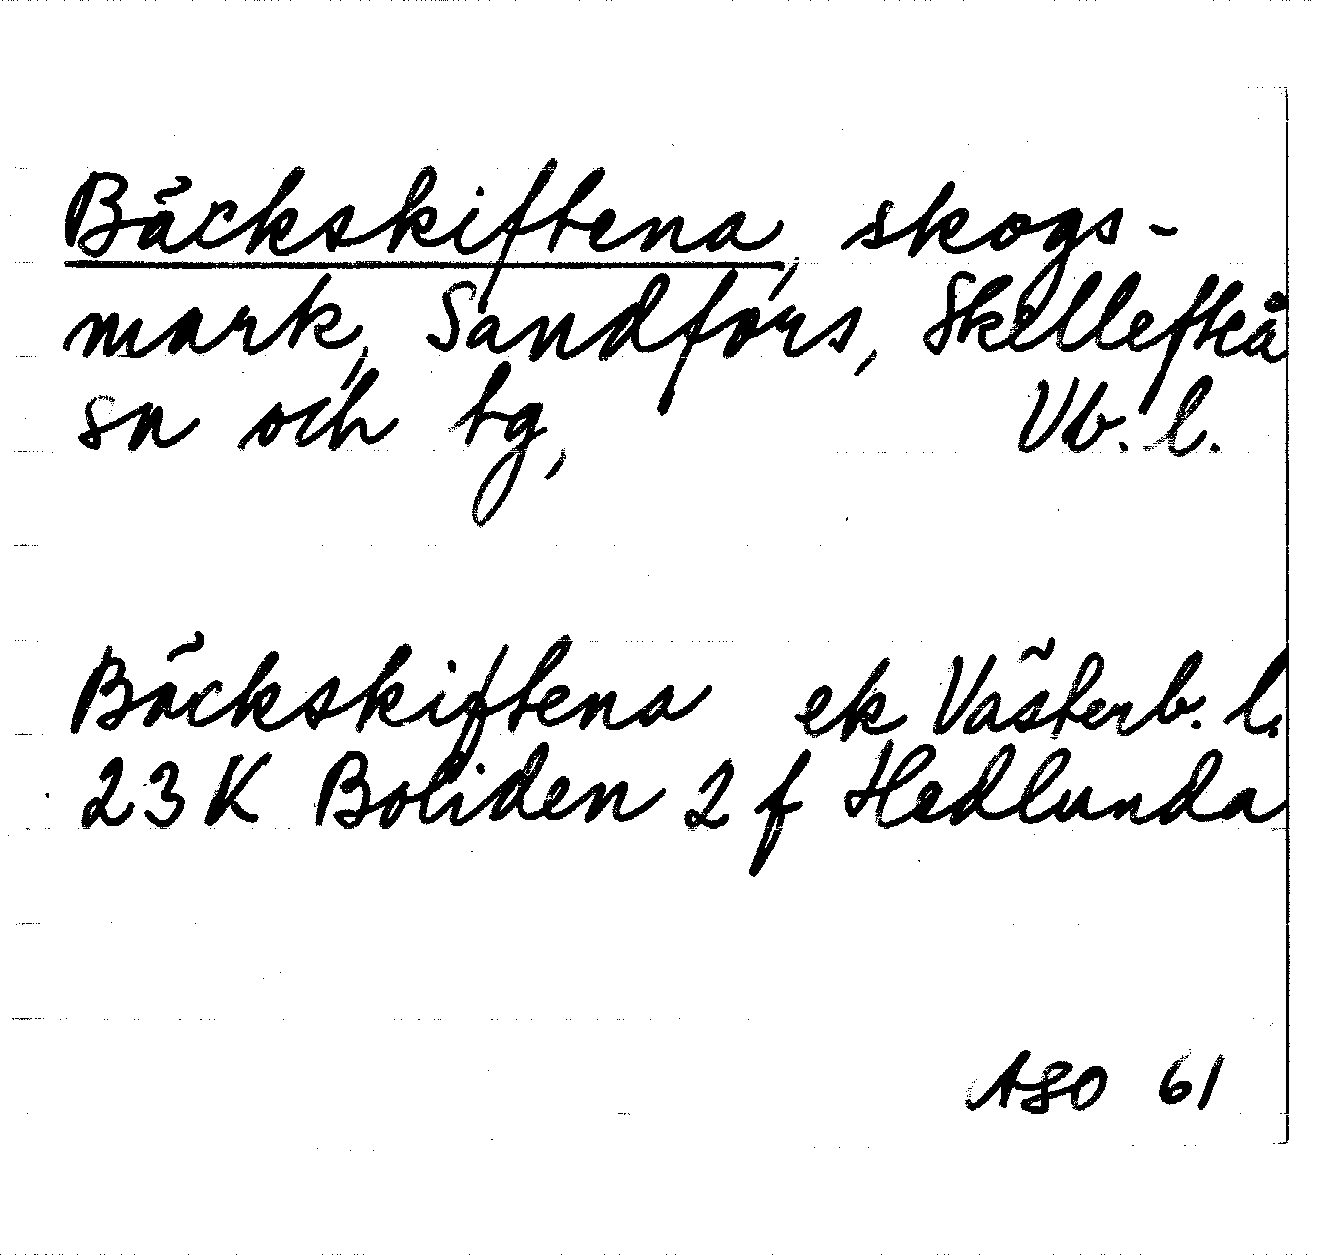 Bäckskiftena, skogs-
mark, Sandfors, Skellefteå
sn och tg, Vb. l.
Bäckskiftena ek Västerb. l.
23 K Boliden 2 f Hedlunda
ASO 61